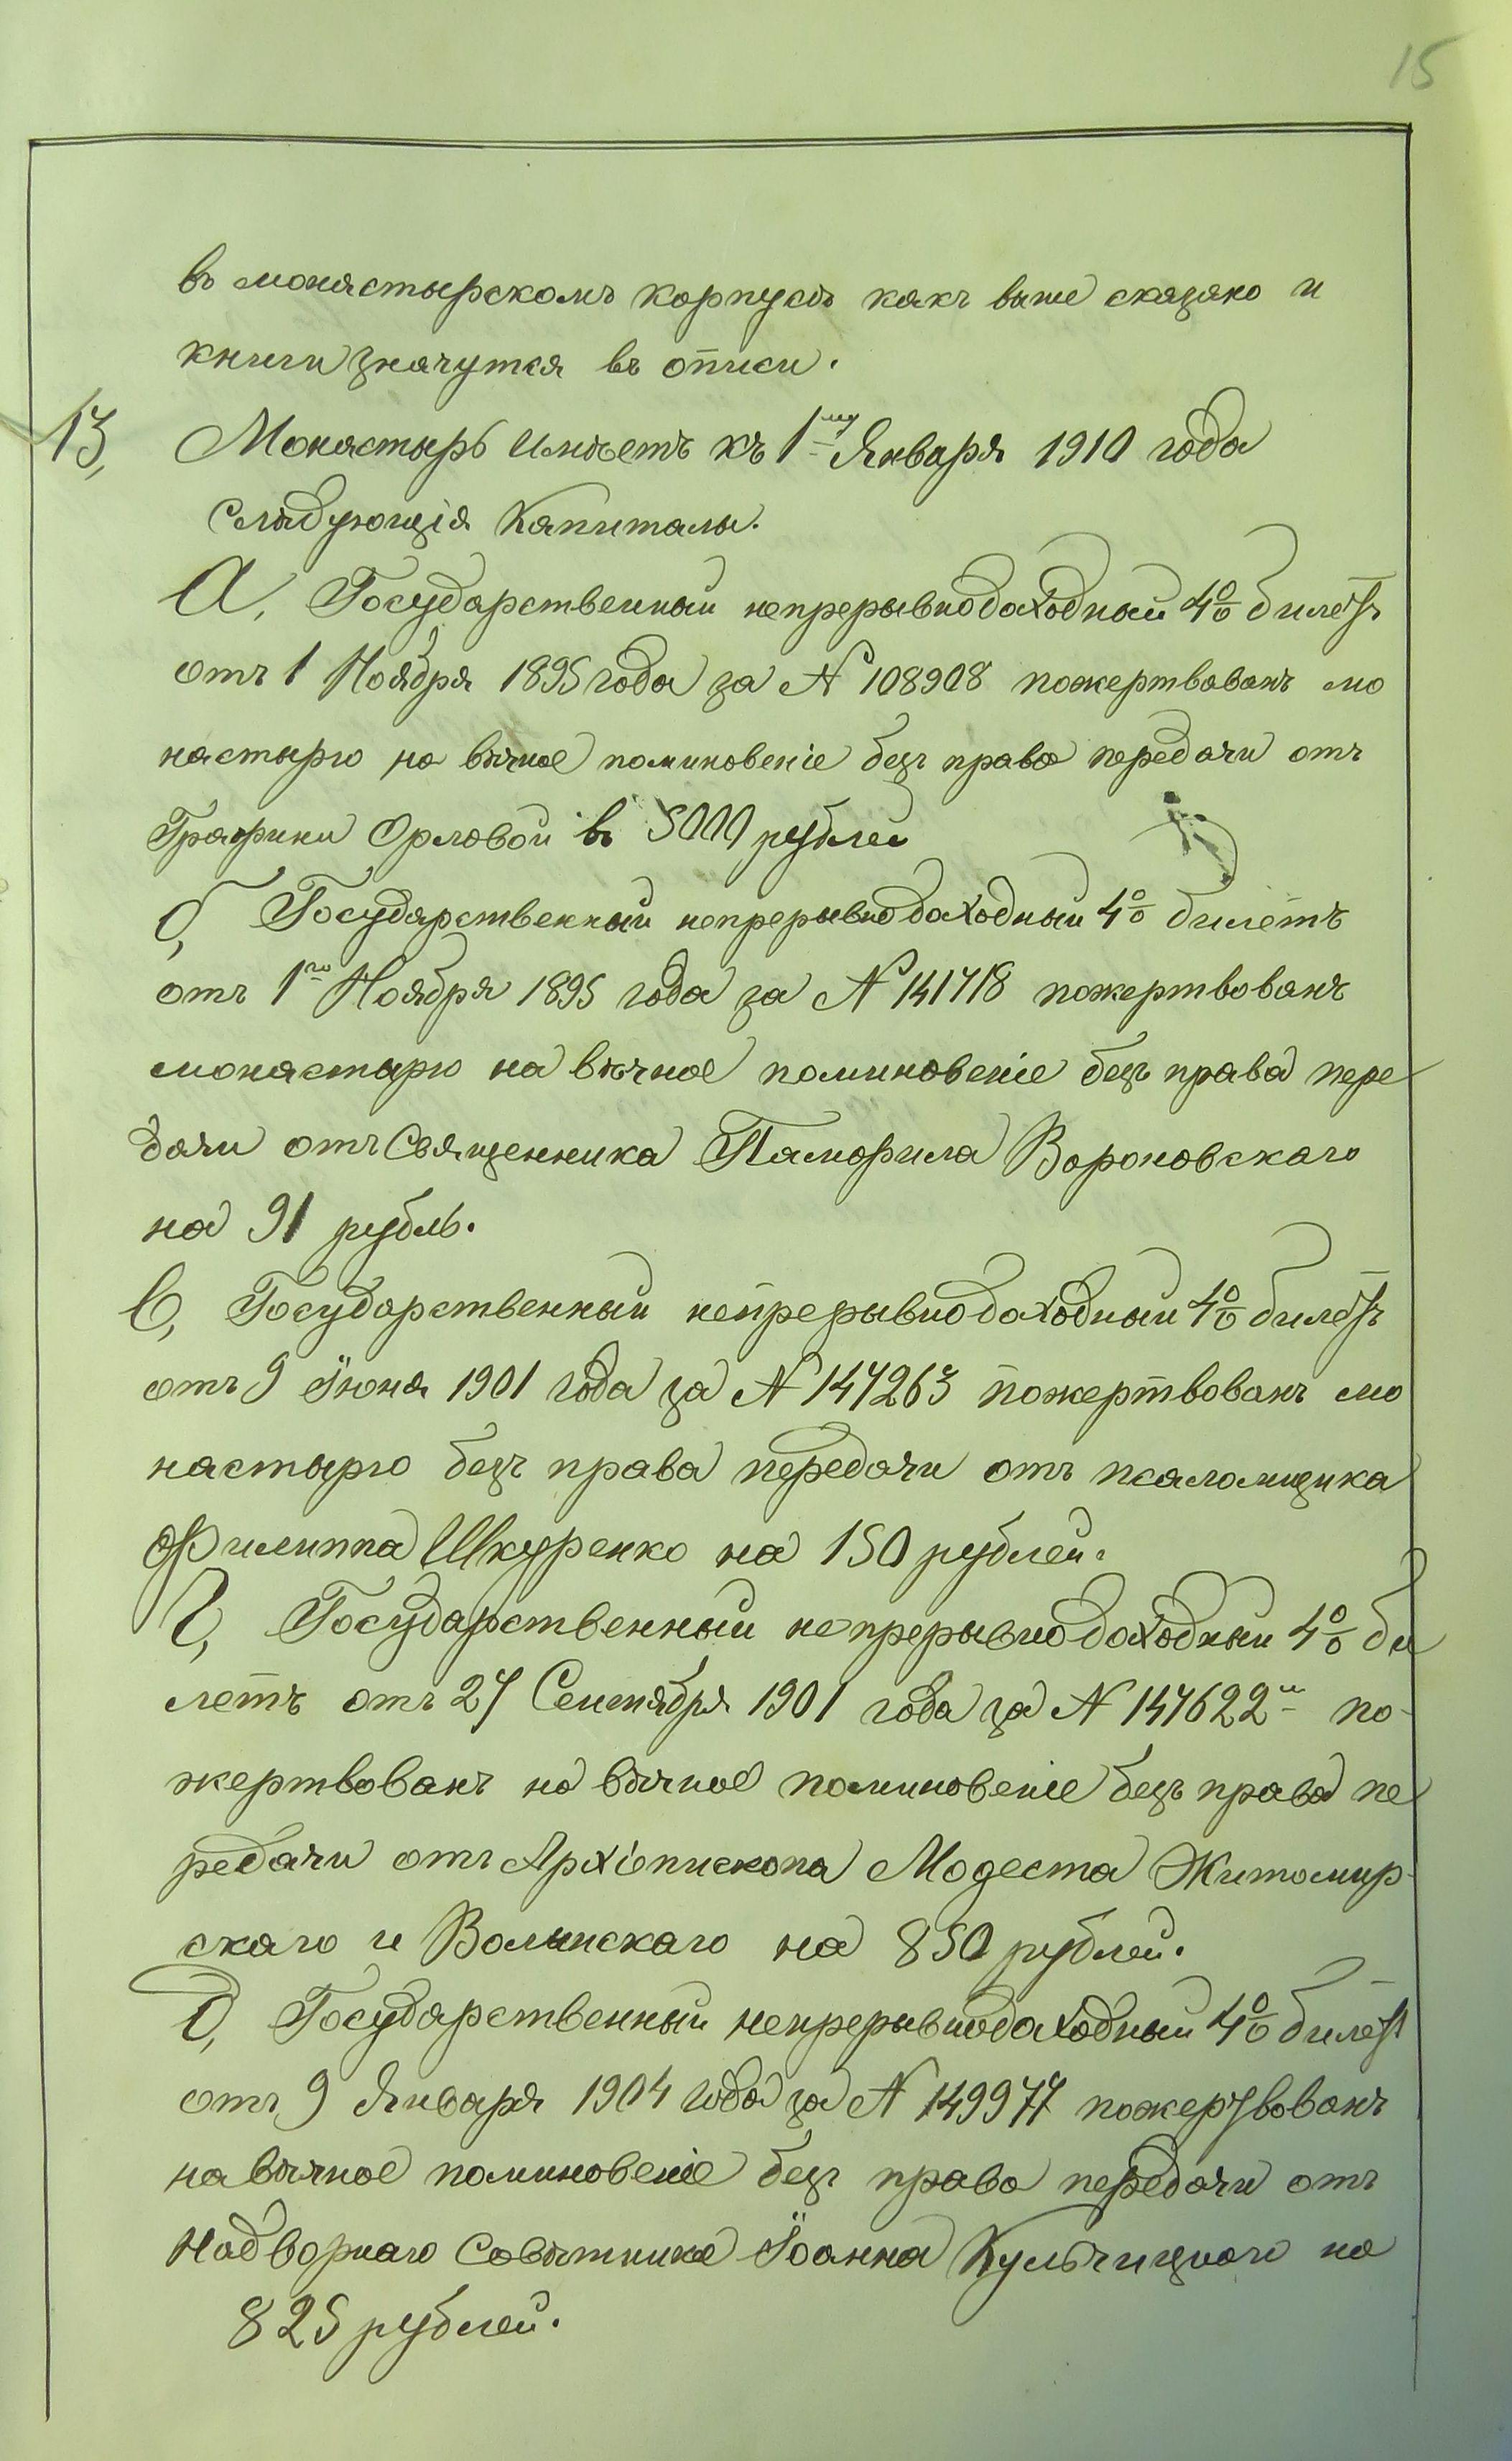 15
въ монастырскомъ корпусѣ какъ выше сказано и
книги значутся въ описи.
13, Монастырь имѣетъ къ 1му Января 1910 года
Слѣдующія Капиталы.
А, Государственный непрерывнодоходный 4% билетъ
отъ 1 Ноября 1895 года за № 108908 пожертвованъ мо
настырю на вѣчное поминовеніе безъ права передачи отъ
Графини Орловой въ 5000 рублей
б, Государственный непрерывнодоходный 4% билетъ
отъ 1го Ноября 1895 года за № 141718 пожертвованъ
монастырю на вѣчное поминовеніе безъ права пере
дачи отъ Священника Памфила Вороновскаго
на 91 рубль.
в, Государственный непрерывнодоходный 4% билетъ
отъ 9 Іюня 1901 года за № 147263 пожертвованъ мо
настырю безъ права передачи отъ псаломщика
Филиппа Шкуренко на 150 рублей.
Г, Государственный непрерывнодоходный 4% би
летъ отъ 27 Сентября 1901 года за № 147622м по-
жертвованъ на вѣчное поминовеніе безъ права пе
редачи отъ Архіепископа Модеста Житомир-
скаго и Волынскаго на 850 рублей.
д, Государственный непрерывнодоходный 4% билетъ
отъ 9 Января 1904 года за № 149977 пожертвованъ
на вѣчное поминовеніе безъ права передачи отъ
Надворнаго Совѣтника Іоанна Кульчицкаго на
825 рублей.